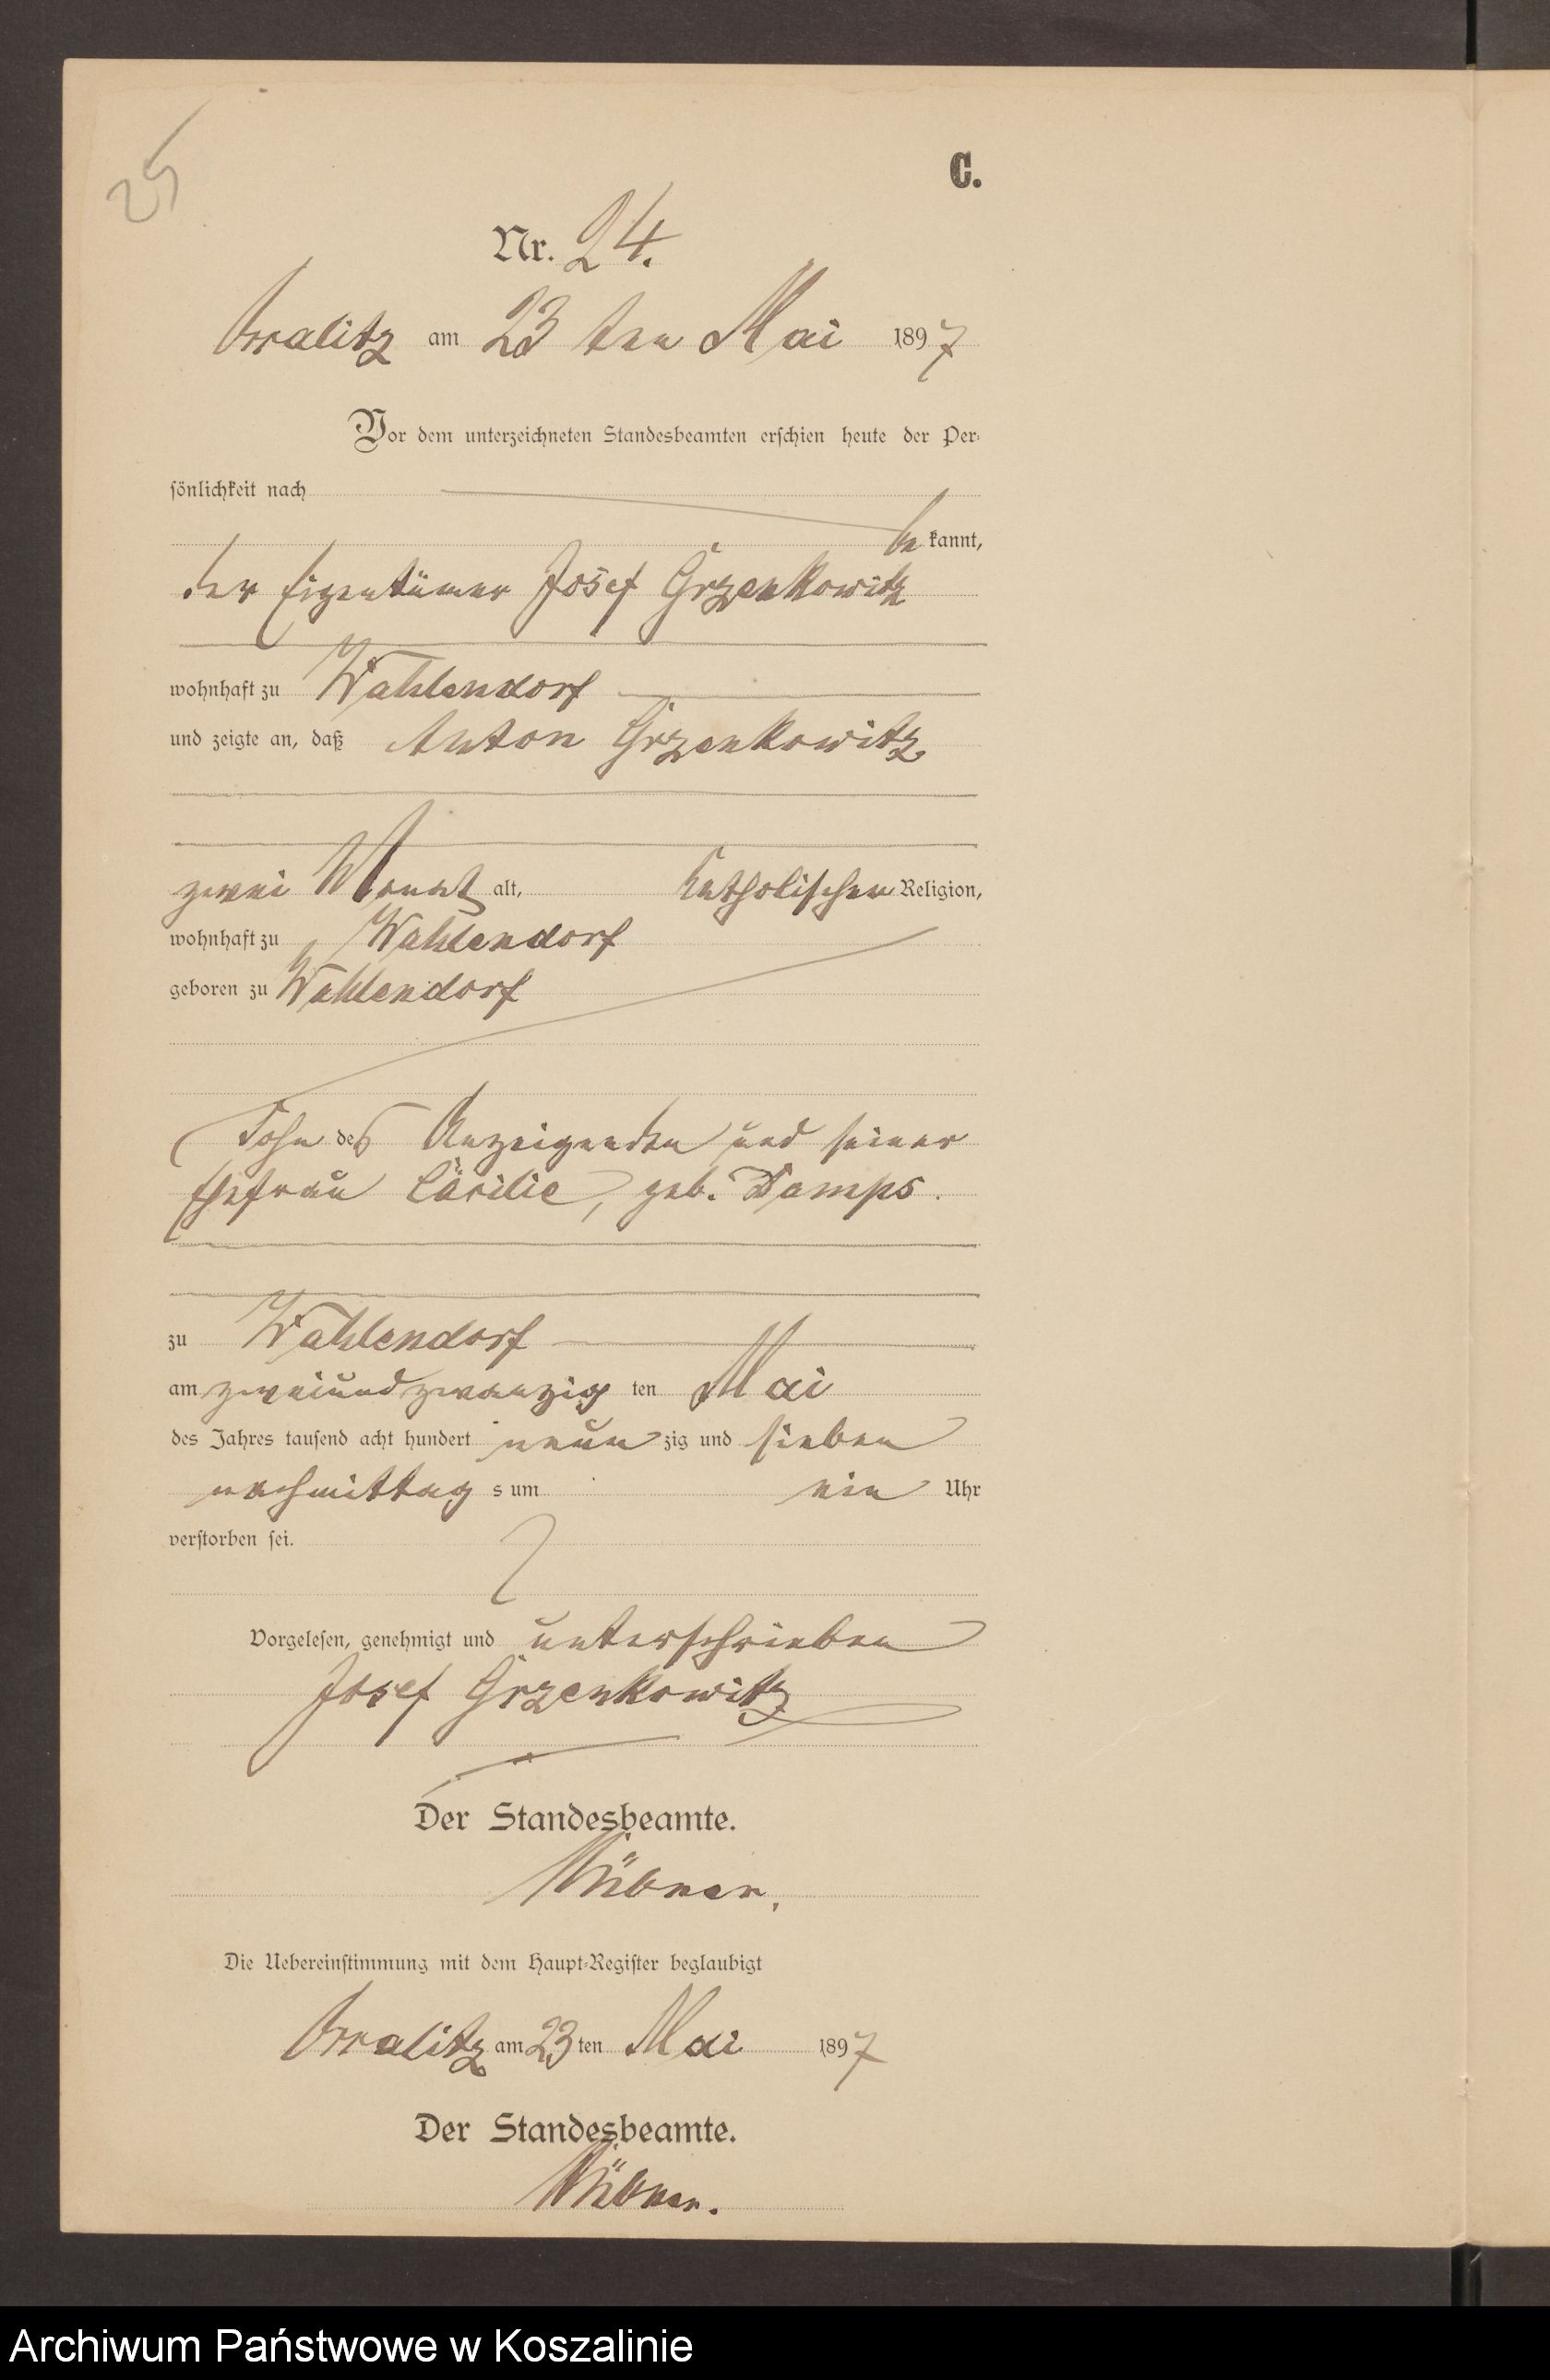 25
C.
Nr. 24.
am 23 ten Mai 1897
Vor dem unterzeichneten Standesbeamten erschien heute der Per-
sönlichkeit nach
be kannt,
der Eigentümer Josef Grzenkowitz
wohnhaft zu Wahlendorf
und zeigte an, daß Anton Grzenkowitz
zwei Monat alt, katholischer Religion,
wohnhaft zu Wahlendorf
geboren zu Wahlendorf
Sohn des Anzeigenden und seiner
Ehefrau Cäcilie, geb. Damps.
zu Wahlendorf
am zweiundzwanzig ten Mai
des Jahres tausend acht hundert neun zig und sieben
nachmittag s um ein Uhr
verstorben sei.
Vorgelesen, genehmigt und unterschrieben
Josef Grzenkowitz
Der Standesbeamte.
Die Uebereinstimmung mit dem Haupt-Register beglaubigt
am 23 ten Mai 1897
Der Standesbeamte.
Archiwum Państwowe w Koszalinie